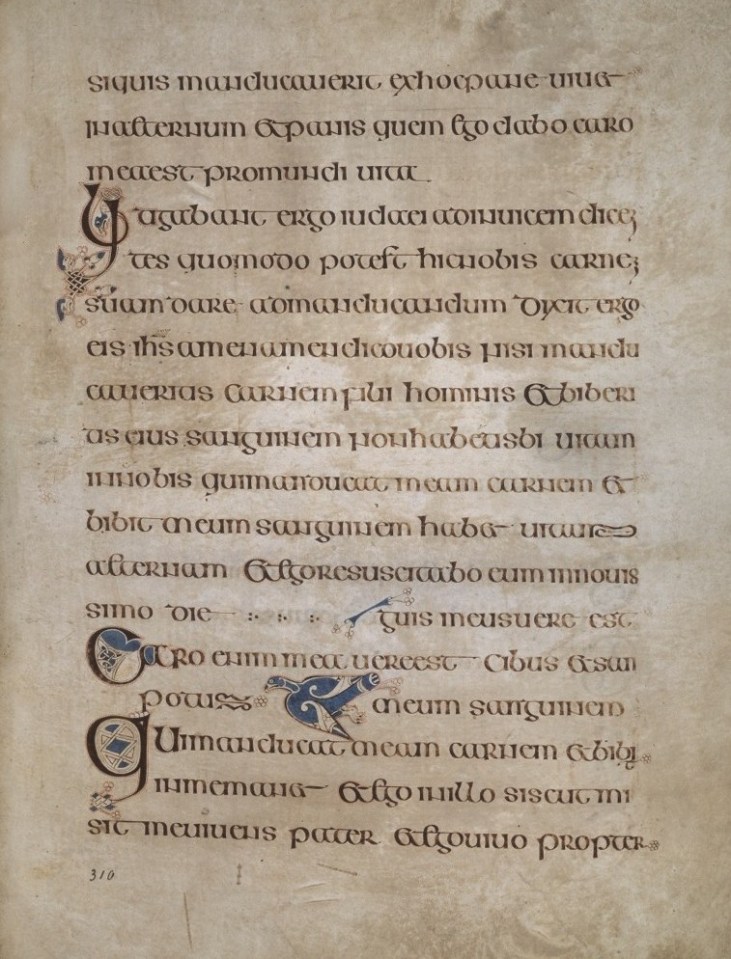 siquis manducauerit exhocpane uiuet
inaeternum etpanis quem ego dabo caro
meaest promundi uita
Litigabant ergo iudaei adinuicem dicen
tes quomodo potest hicnobis carnem
suam dare admanducandum Dixit ergo
eis ihs amen amen dico uobis nisi mandu
caueritis carnem filii hominis etbiberi
tis eius sanguinem nonhabetisbi uitam
inuobis quimanducat meam carnem et
bibit meum sanguinem habet uitam
aeternam etegoresuscitabo eum innouis
simo die guis meusuere est
Caro enim mea uereest cibus etsan
potus meum sanguinem
Qui manducat meam carnem etbibit
inmemanet etego inillo sicut mi
sit meuiuens pater etegouiuo propter
310